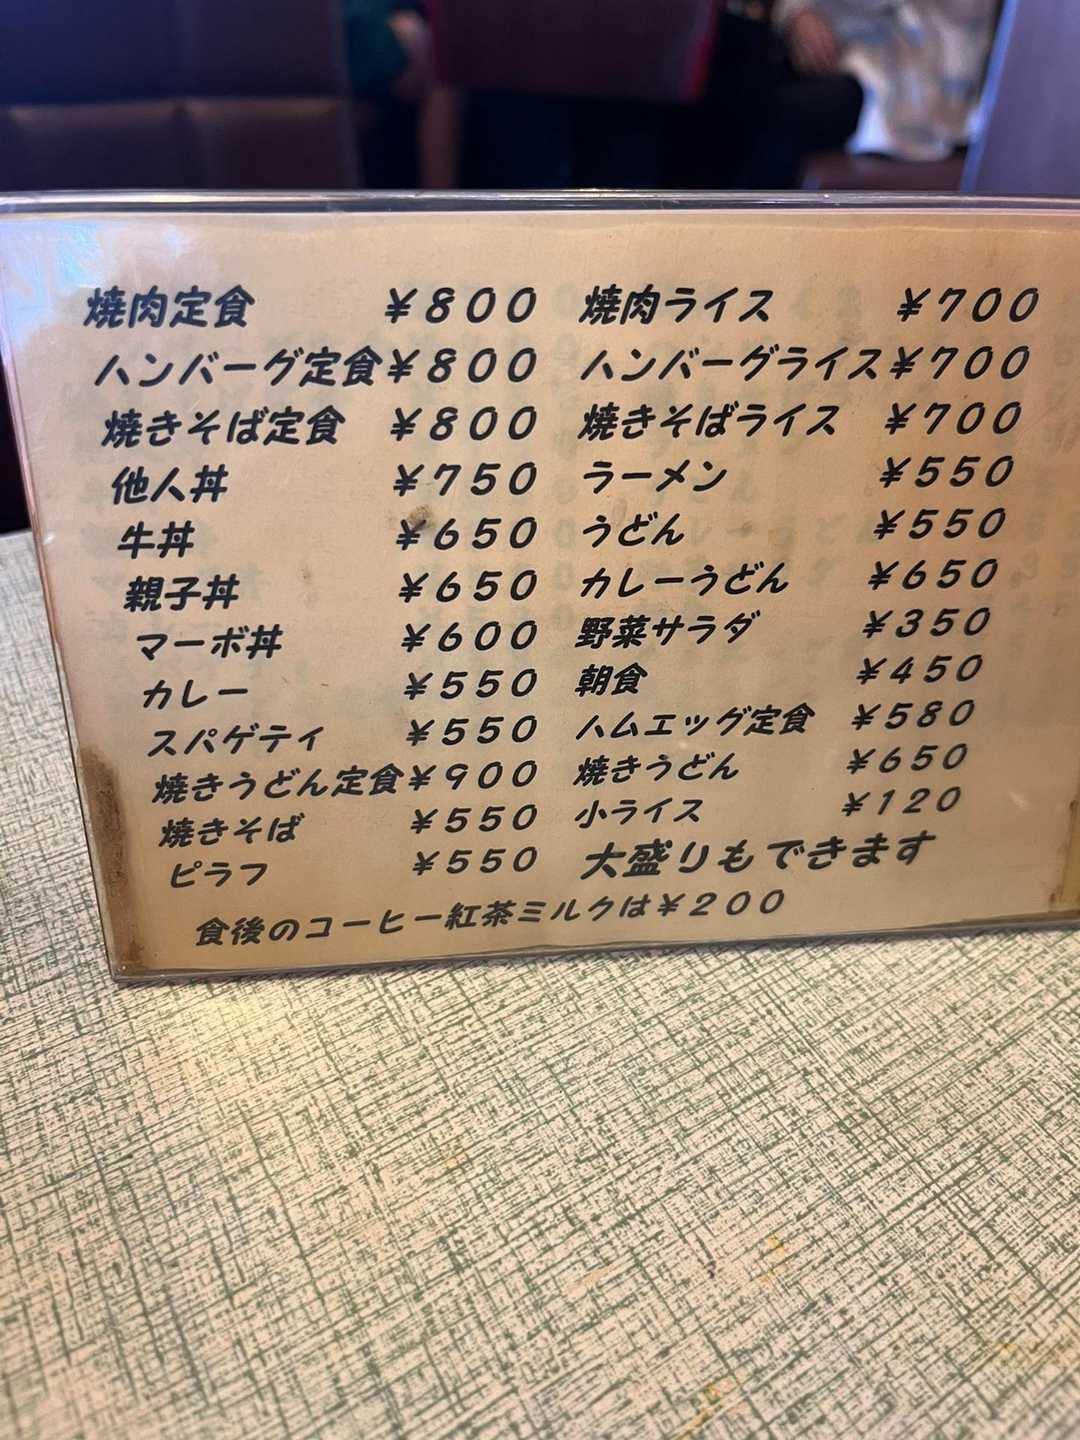 焼肉定食 ¥800 焼肉ライス ¥700
ハンバーグ定食¥800 ハンバーグライス¥700
焼きそば定食 ¥800 焼きそばライス ¥700
他人丼 ¥750 ラーメン ¥550
牛丼 ¥650 うどん ¥550
親子丼 ¥650 カレーうどん ¥650
マーボ丼 ¥600 野菜サラダ ¥350
カレー ¥550 朝食 ¥450
スパゲティ ¥550 ハムエッグ定食 ¥580
焼きうどん定食¥900 焼きうどん ¥650
焼きそば ¥550 小ライス ¥120
ピラフ ¥550 大盛りもできます
食後のコーヒー紅茶ミルクは¥200